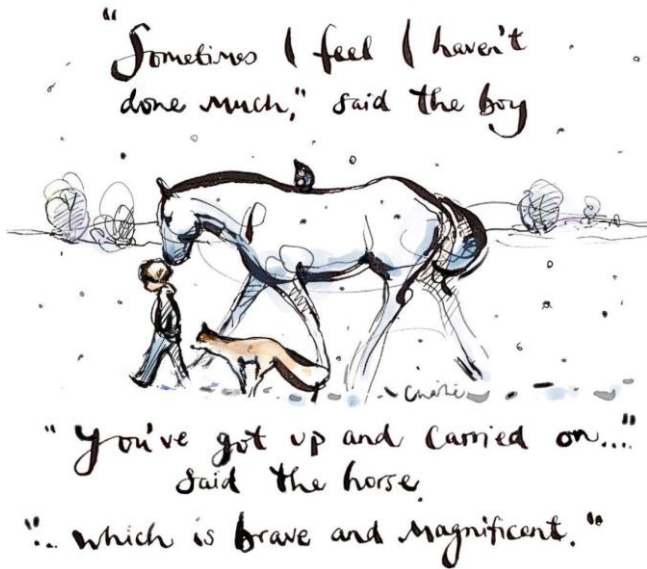 "Sometimes I feel I haven't
done much," said the boy
Charlie
"You've got up and carried on..."
said the horse.
"... which is brave and magnificent."